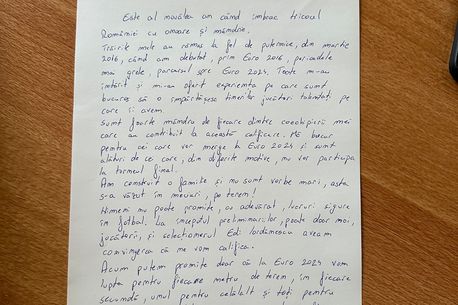 Este al nouălea an când îmbrac tricoul
României cu onoare și mândrie.
Trăirile mele au rămas la fel de puternice, din martie
2016, când am debutat, prin Euro 2016, perioadele
mai grele, parcursul spre Euro 2024. Toate m-au
întărit și mi-au oferit experiența pe care sunt
bucuros să o împărtășesc tinerilor jucători talentați pe
care îi avem.
Sunt foarte mândru de fiecare dintre coechipierii mei
care au contribuit la această calificare. Mă bucur
pentru cei care vor merge la Euro 2024 și sunt
alături de cei care, din diferite motive, nu vor participa
la turneul final.
Am construit o familie și nu sunt vorbe mari, asta
s-a văzut în meciuri, pe teren!
Nimeni nu poate promite, cu adevărat, lucruri sigure
în fotbal. La începutul preliminariilor, poate doar noi,
jucătorii, și selecționerul Edi Iordănescu aveam
convingerea că ne vom califica.
Acum putem promite doar că la Euro 2024 vom
lupta pentru fiecare metru de teren, în fiecare
secundă, unul pentru celălalt și toți pentru